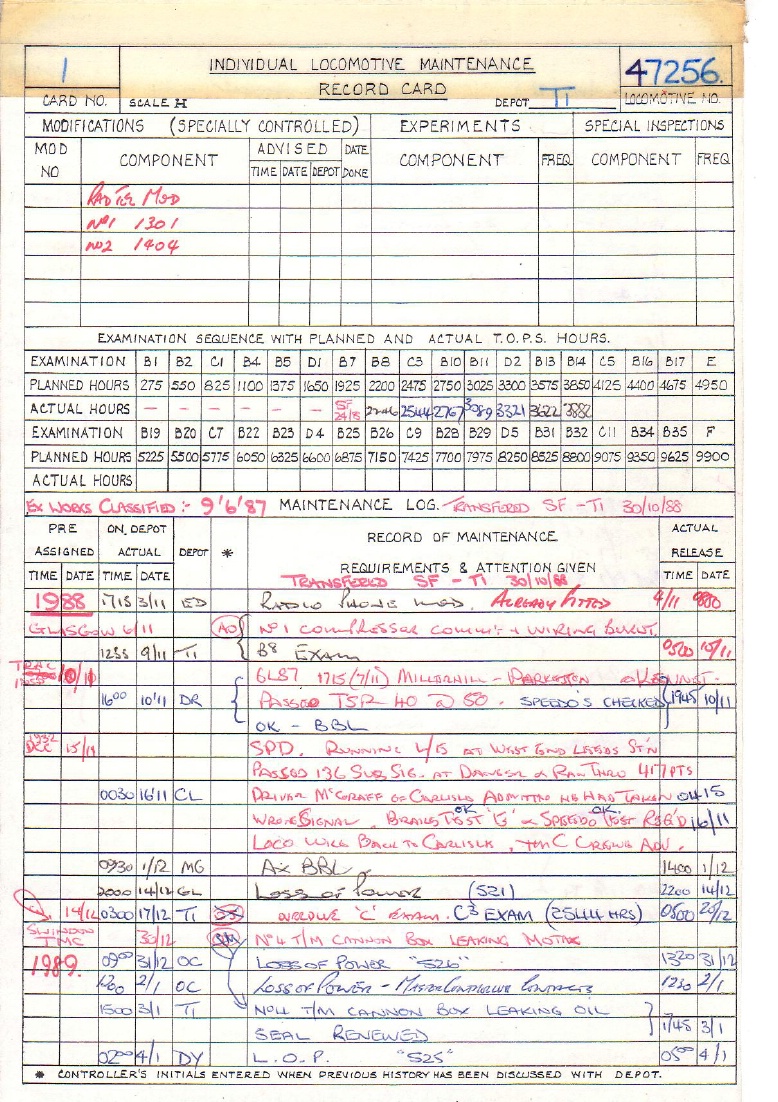 1 INDIVIDUAL LOCOMOTIVE MAINTENANCE 47256.
RECORD CARD
CARD NO. SCALE H DEPOT TI LOCOMOTIVE NO.
MODIFICATIONS (SPECIALLY CONTROLLED) EXPERIMENTS SPECIAL INSPECTIONS
MOD NO COMPONENT ADVISED DATE DONE COMPONENT FREQ COMPONENT FREQ
TIME DATE DEPOT
RAD TER MOD
Nº1 1301
Nº2 1404
EXAMINATION SEQUENCE WITH PLANNED AND ACTUAL T.O.P.S. HOURS.
EXAMINATION B1 B2 C1 B4 B5 D1 B7 B8 C3 B10 B11 D2 B13 B14 C5 B16 B17 E
PLANNED HOURS 275 550 825 1100 1375 1650 1925 2200 2475 2750 3025 3300 3575 3850 4125 4400 4675 4950
ACTUAL HOURS - - - - - - SF 24/8 2246 2544 2767 3089 3321 3622 3882
EXAMINATION B19 B20 C7 B22 B23 D4 B25 B26 C9 B28 B29 D5 B31 B32 C11 B34 B35 F
PLANNED HOURS 5225 5500 5775 6050 6325 6600 6875 7150 7425 7700 7975 8250 8525 8800 9075 9350 9625 9900
ACTUAL HOURS
EX WORKS CLASSIFIED :- 9'6'87 MAINTENANCE LOG. TRANSFERED SF - TI 30/10/88
PRE ASSIGNED ON DEPOT ACTUAL DEPOT * RECORD OF MAINTENANCE ACTUAL RELEASE
REQUIREMENTS & ATTENTION GIVEN
TIME DATE TIME DATE TRANSFERED SF - TI 30/10/88 TIME DATE
1988 1715 3/11 ED RADIO PHONE MOD. ALREADY FITTED 4/11
GLASGOW 6/11 AO Nº1 COMPRESSER COMM: + WIRING BURNT.
1235 9/11 TI B8 EXAM 0500 10/11
10/11 6L87 1715 (7/11) MILLERHILL - PARKESTON
1600 10'11 DR PASSED TSR 40 @ 50. SPEEDO'S CHECKED 1945 10/11
OK - BBL
1932 DEC 15/11 SPD. RUNNING L/15 AT WEST END LEEDS ST'N
PASSED 136 SUB SIG. AT DANGER & RAN THRO 417 PTS
0030 16'11 CL DRIVER McGRAFF OF CARLISLE ADMITTED HE HAD TAKEN 0415
WRONG SIGNAL. BRAKE TEST 'G' OK & SPEEDO TEST OK 16/11
LOCO WORK BACK TO CARLISLE, TMC CREWE ADV.
0930 1/12 MG Ax BBL 1400 1/12
2000 14/12 GL LOSS OF POWER (521) 2200 14/12
14/12 0300 17/12 TI OVERDUE 'C' EXAM. C3 EXAM (2544 HRS) 0800 20/12
SWINDON TMC 30/12 Nº4 T/M CANNON BOX LEAKING
1989. 0900 31/12 OC LOSS OF POWER "S26" 1330 31/12
1200 2/1 OC LOSS OF POWER - MASTER CONTROLLER CONTACTS 1230 2/1
1500 3/1 TI Nº4 T/M CANNON BOX LEAKING OIL
SEAL RENEWED 1745 3/1
0200 4/1 DY L.O.P. "S25" 0500 4/1
* CONTROLLER'S INITIALS ENTERED WHEN PREVIOUS HISTORY HAS BEEN DISCUSSED WITH DEPOT.